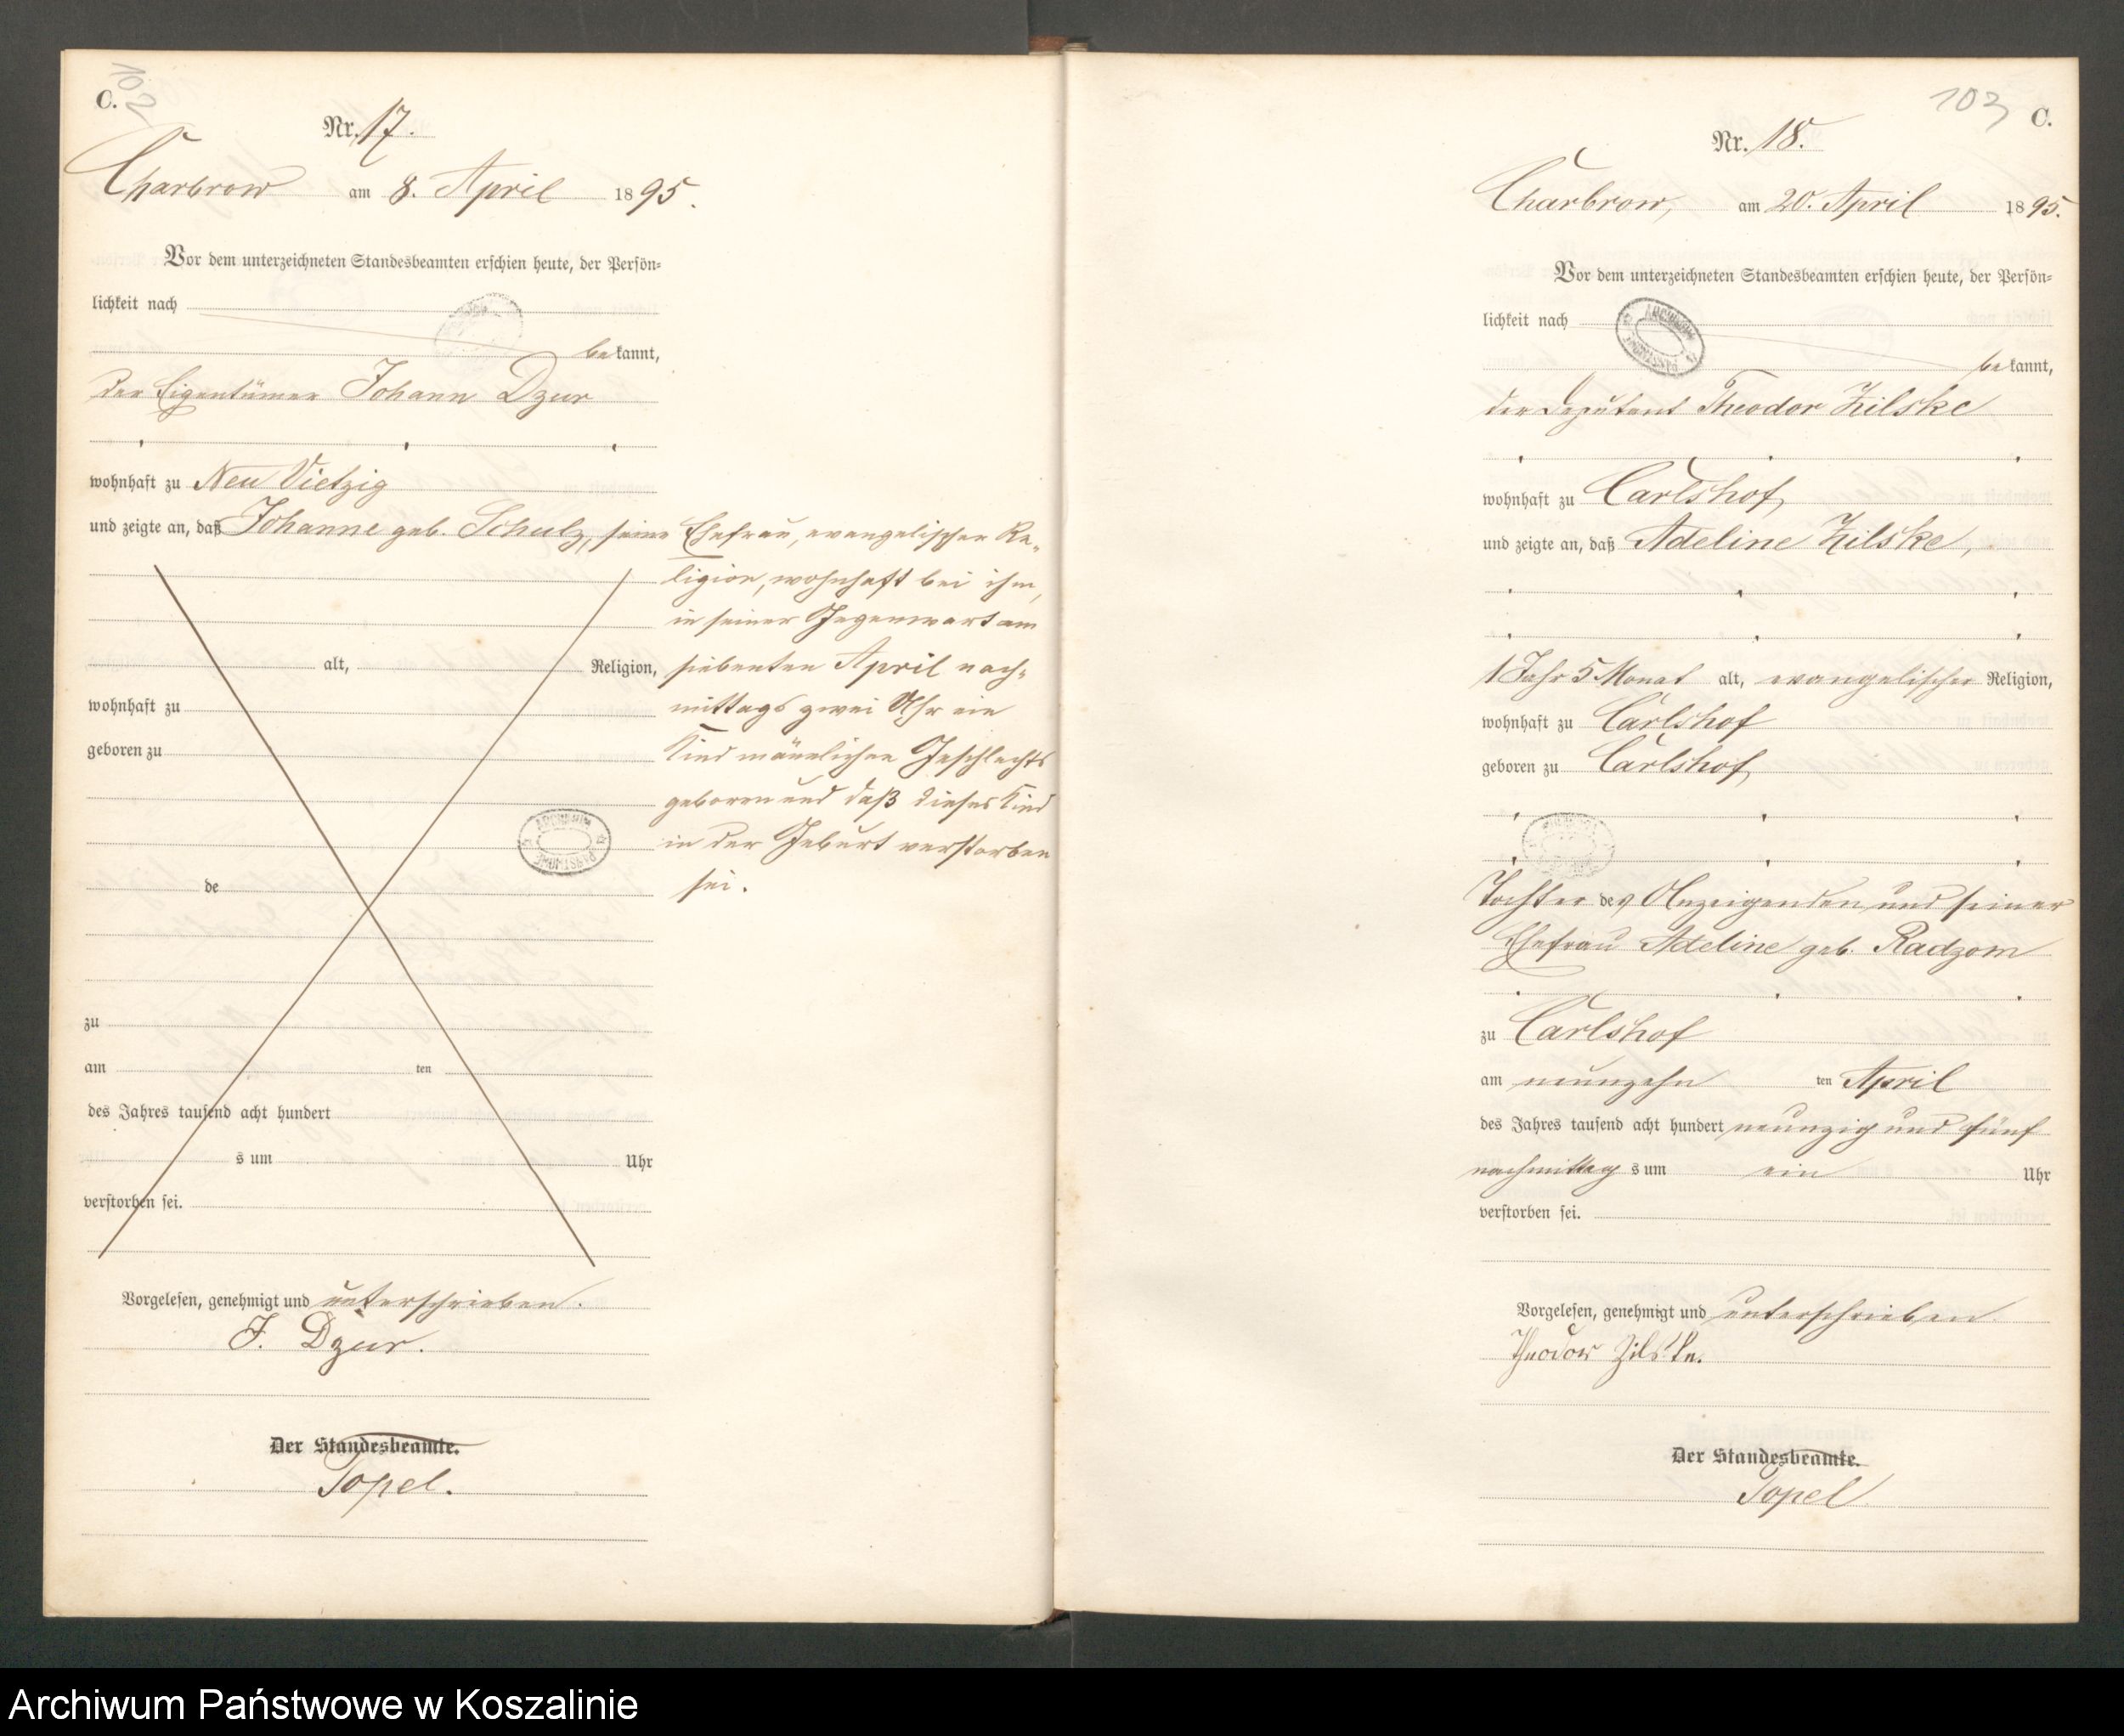 102
C.
Nr. 17.
Charbrow am 8. April 1895.
Vor dem unterzeichneten Standesbeamten erschien heute, der Persön-
lichkeit nach
bekannt,
der Eigentümer Johann Dzur
wohnhaft zu Neu Vietzig
und zeigte an, daß Johanne geb. Schulz, seine Ehefrau, evangelischer Re-
ligion, wohnhaft bei ihm,
in seiner Gegenwart am
alt, Religion, siebenten April nach-
wohnhaft zu mittags zwei Uhr ein
geboren zu Kind männlichen Geschlechts
geboren und daß dieses Kind
in der Geburt verstorben
de sei.
zu
am ten
des Jahres tausend acht hundert
s um Uhr
verstorben sei.
Vorgelesen, genehmigt und unterschrieben.
J. Dzur.
Der Standesbeamte.
Topel.
103
C.
Nr. 18.
Charbrow, am 20. April 1895.
Vor dem unterzeichneten Standesbeamten erschien heute, der Persön-
lichkeit nach
bekannt,
der Deputant Theodor Zilske
wohnhaft zu Carlshof
und zeigte an, daß Adeline Zilske,
1 Jahr 5 Monat alt, evangelischer Religion,
wohnhaft zu Carlshof
geboren zu Carlshof
Tochter des Anzeigenden und seiner
Ehefrau Adeline geb. Radzom
zu Carlshof
am neunzehn ten April
des Jahres tausend acht hundert neunzig und fünf
nachmittag s um ein Uhr
verstorben sei.
Vorgelesen, genehmigt und unterschrieben
Theodor Zilske.
Der Standesbeamte.
Topel
Archiwum Państwowe w Koszalinie